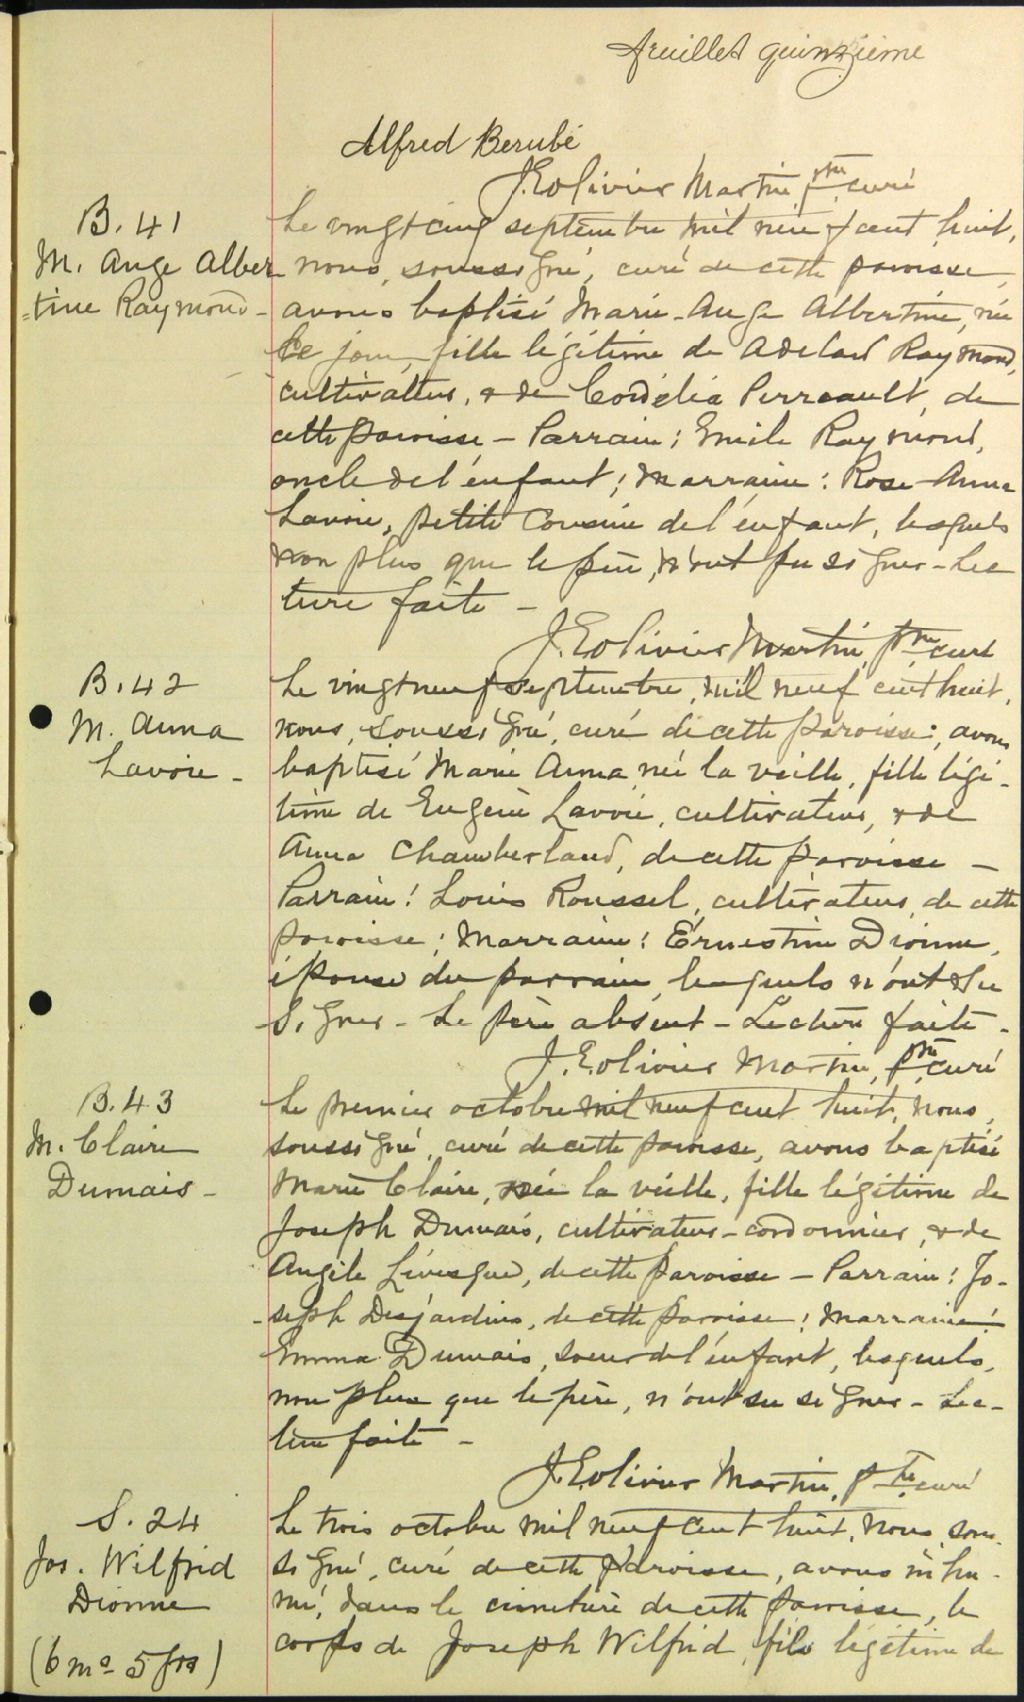 feuillet quinzième
Alfred Berubé
J. E. Olivier Martin, ptre curé
B. 41
M. Ange Alber
=tine Raymond -
Le vingt cinq septembre mil neuf cent huit,
nous, soussigné, curé de cette paroisse,
avons baptisé Marie-Ange Albertine, née
le jour, fille légitime de Adelard Raymond,
cultivateur, & de Cordélia Perreault, de
cette paroisse - Parrain : Emile Raymond,
oncle de l'enfant ; Marraine : Rose-Anna
Lavoie, petite cousine de l'enfant, lesquels
non plus que le père, n'ont pu signer - Lec
ture faite -
J. E. Olivier Martin, ptre curé
B. 42
M. Anna
Lavoie -
Le vingt neuf septembre, mil neuf cent huit,
nous, soussigné, curé de cette paroisse, avons
baptisé Marie Anna, née la veille, fille légi-
time de Eugène Lavoie, cultivateur, & de
Anna Chamberland, de cette paroisse -
Parrain : Louis Roussel, cultivateur, de cette
paroisse ; Marraine : Ernestine Dionne,
épouse du parrain, lesquels n'ont su
signer - Le père absent - Lecture faite -
J. E. Olivier Martin, ptre curé
B. 43
M. Claire
Dumais -
Le premier octobre mil neuf cent huit, nous,
soussigné, curé de cette paroisse, avons baptisé
Marie Claire, née la veille, fille légitime de
Joseph Dumais, cultivateur-cordonnier, & de
Angèle Lévesque, de cette paroisse - Parrain : Jo-
-seph Desjardins, de cette paroisse ; Marraine :
Emma Dumais, soeur de l'enfant, lesquels,
non plus que le père, n'ont su signer - Lec-
ture faite -
J. E. Olivier Martin, ptre curé
S. 24
Jos. Wilfrid
Dionne
(6 ms 5 jrs)
Le trois octobre mil neuf cent huit, nous, sous
signé, curé de cette paroisse, avons inhu-
mé, dans le cimetière de cette paroisse, le
corps de Joseph Wilfrid, fils légitime de